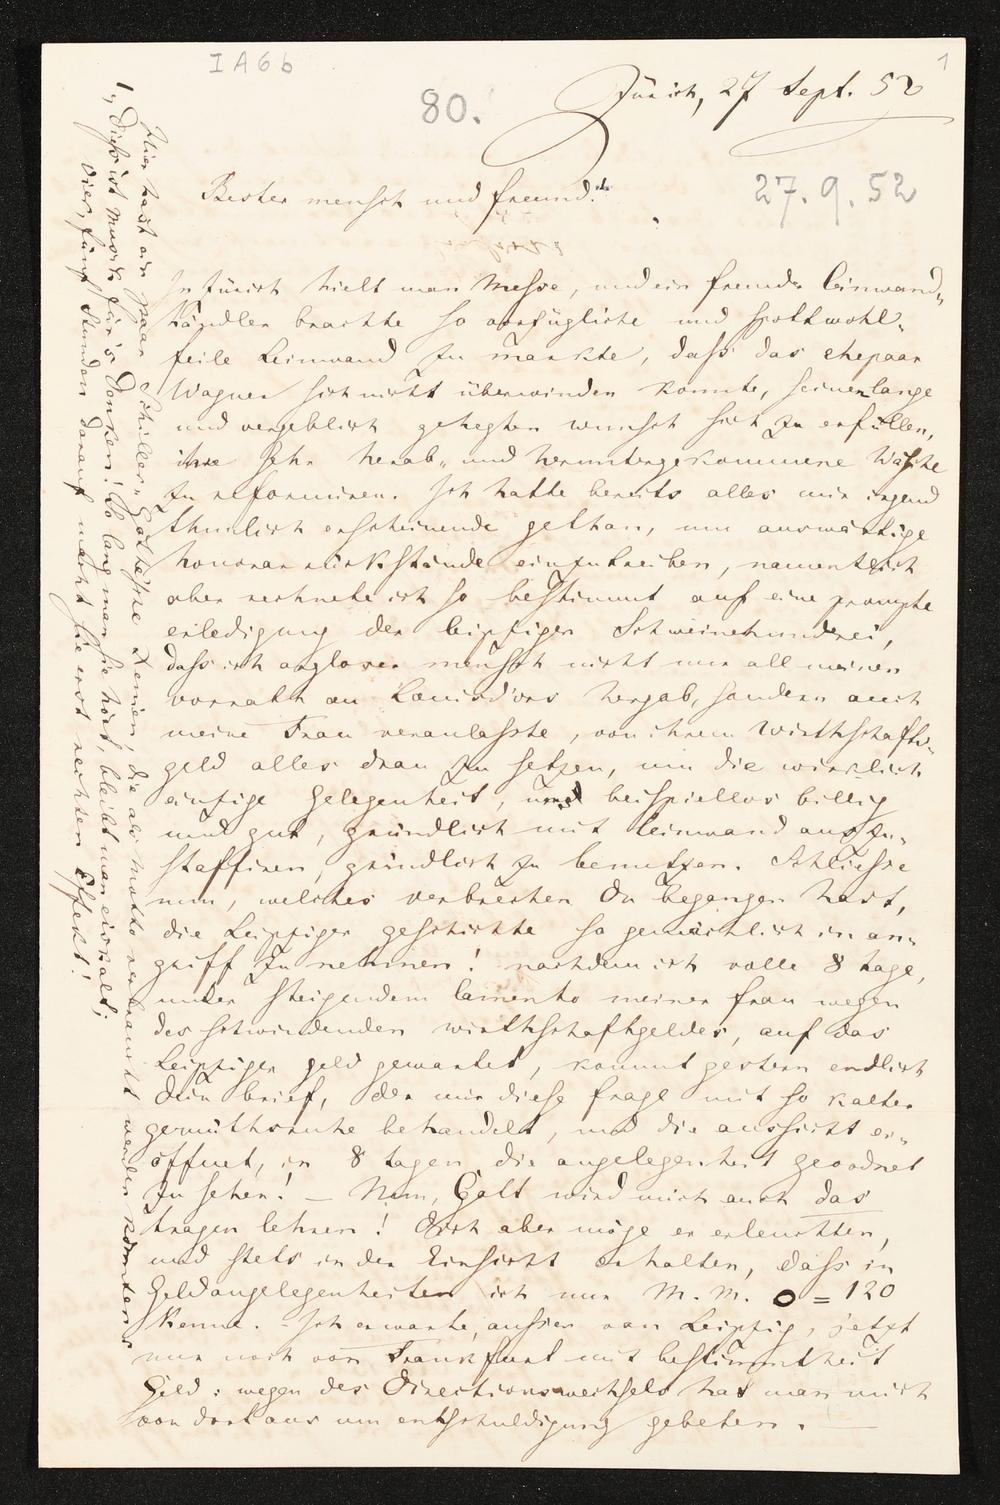 I A 6 b
1
80.
Zürich, 27 Sept. 52
27.9.52
Bester mensch und freund!
In Zürich hielt man Messe, und ein fremder leinwand„
händler brachte so vorzügliche und spottwohl„
feile Leinwand zu markte, dass das ehepaar
Wagner sich nicht überwinden konnte, seinen lange
und vergeblich gehegten wunsch sich zu erfüllen,
ihre sehr herab„ und heruntergekommene Wäsche
zu reformiren. Ich hatte bereits alles mir irgend
thunlich erscheinende gethan, um auswärtige
honorarrückstände einzutreiben, namentlich
aber rechnete ich so bestimmt auf eine prompte
erledigung der leipziger Schweinehunderei,
dass ich argloser mensch nicht nur all meinen
vorrath an Louisd'ors hergab, sondern auch
meine Frau veranlasste, von ihrem Wirthschafts„
geld alles dran zu setzen, um die wirklich
einzige Gelegenheit, beispiellos billig
und gut, gründlich mit leinwand auszu„
staffiren, gründlich zu benutzen. Schliesse
nun, welches verbrechen Du begangen hast,
die Leipziger geschichte so gemächlich in an„
griff zu nehmen! nachdem ich volle 8 tage,
unter steigendem lamento meiner frau wegen
des schwindenden wirthschaftgeldes, auf das
Leipziger geld gewartet, kommt gestern endlich
Dein brief, der mir diese frage mit so kalter
gemüthsruhe behandelt, und die aussicht er„
öffnet, in 8 tagen die angelegenheit geordnet
zu sehen! — Nun, Gott wird mich auch das
tragen lehren! Dich aber möge er erleuchten,
und stets in der Einsicht erhalten, dass in
Geldangelegenheiten ich nur M. M. 0 = 120
kenne. – Ich erwarte, ausser von Leipzig, jetzt
nur noch von Frankfurt mit bestimmtheit
Geld: wegen des Directionswechsels hat man mich
von dort aus um entschuldigung gebeten. —
Hier hast ein paar Schiller„Göthe'sche Xenien, die als motto verbraucht werden könnten:
1, Diess ist musik für's Denken! So lang man sie hört, bleibt man eiskalt;
Vier, fünf Stunden darauf macht sie erst rechten Effekt!